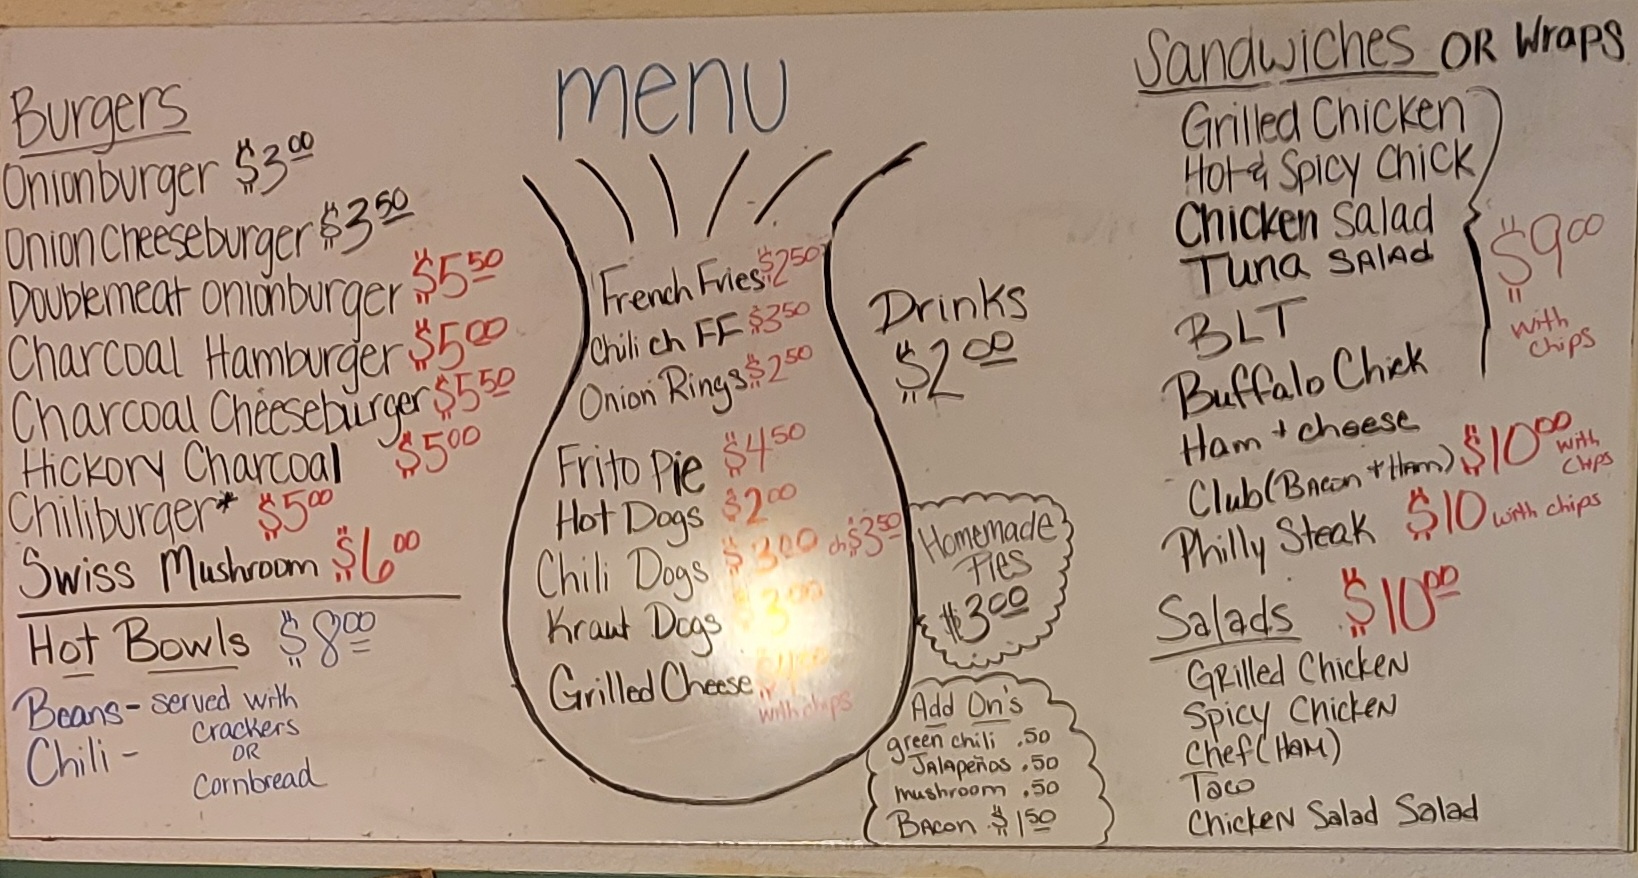 menu
Burgers
Onionburger $3.00
Onion Cheeseburger $3.50
Doublemeat onionburger $5.50
Charcoal Hamburger $5.00
Charcoal Cheeseburger $5.50
Hickory Charcoal $5.00
Chiliburger* $5.00
Swiss Mushroom $6.00
Hot Bowls $8.00
Beans - served with
Crackers
OR
Chili -
Cornbread
French Fries $2.50
Chili ch FF $3.50
Onion Rings $2.50
Frito Pie $4.50
Hot Dogs $2.00
Chili Dogs $3.00 ch $3.50
Kraut Dogs $3.00
Grilled Cheese
with chips
Drinks
$2.00
Homemade
Pies
$3.00
Add On's
green chili .50
Jalapeños .50
mushroom .50
Bacon $1.50
Sandwiches OR Wraps
Grilled Chicken
Hot & Spicy Chick
Chicken Salad
Tuna Salad
BLT
Buffalo Chick
Ham + cheese
$9.00
with
chips
Club (Bacon + Ham) $10.00 with
chips
Philly Steak $10 with chips
Salads $10.00
Grilled Chicken
Spicy Chicken
Chef (Ham)
Taco
Chicken Salad Salad